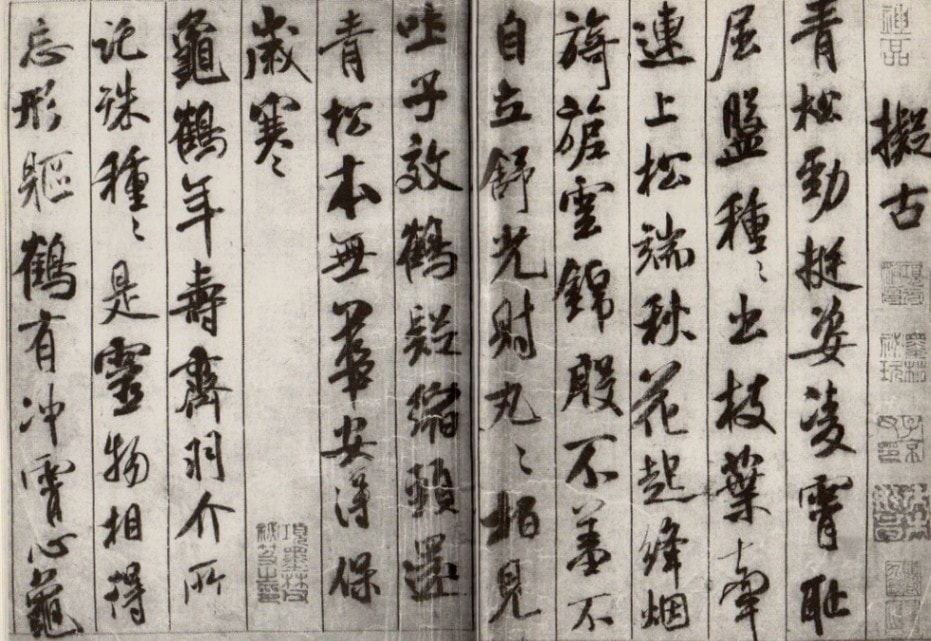 擬古
青松勁挺姿凌霄恥
屈盤種〻出枝葉牽
連上松端秋花起絳烟
旖旎雲錦殷不羞不
自立舒光射丸〻柏見
吐子效鶴疑縮頸還
青松本無華安得保
歲寒〻
龜鶴年壽齊羽介所
託殊種〻是靈物相得
忘形軀鶴有冲霄心龜